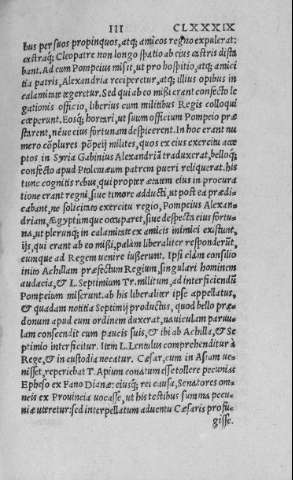 III CLXXXIX
bus per suos propinquos, atq; amicos regno expulerat:
castraq; Cleopatræ non longo spatio ab eius castris dista
bant. Ad eum Pompeius misit, ut pro hospitio, atq; amici
tia patris, Alexandria reciperetur, atq; illius opibus in
calamitate tegeretur. Sed qui ab eo missi erant confecto le
gationis officio, liberius cum militibus Regis colloqui
cœperunt. Eosq; hortari, ut suum officium Pompeio præ
starent, néue eius fortunam despicerent. In hoc erant nu
mero cōplures pōpeij milites, quos ex eius exercitu acce
ptos in Syria Gabinius Alexandriā traduxerat, belloq;
confecto apud Ptolemæum patrem pueri reliquerat. his
tunc cognitis rebus, qui propter ætatem eius in procura
tione erant regni, siue timore adducti, ut post ea prædi
cabant, ne solicitato exercitu regio, Pompeius Alexan
driam, Ægyptumque occuparet, siue despecta eius fortu
na, ut plerunq; in calamitate ex amicis inimici existunt,
ijs, qui erant ab eo missi, palàm liberaliter responderūt,
eumque ad Regem uenire iusserunt. Ipsi clàm consilio
inito Achillam præfectum Regium, singulari hominem
audacia, & L. Septimium Tr. militum, ad interficiendū
Pompeium miserunt. ab his liberaliter ipse appellatus,
& quadam notitia Septimij productus, quod bello præ-
donum apud eum ordinem duxerat, nauiculam paruu-
lam conscendit cum paucis suis, & ibi ab Achilla, & Se
ptimio interficitur. Item L. Lentulus comprehenditur à
Rege, & in custodia necatur. Cæsar, cum in Asiam ue-
nisset, reperiebat T. Apium conatum esse tollere pecunias
Epheso ex Fano Dianæ: eiusq; rei causa, Senatores om-
neis ex Prouincia uocasse, ut his testibus summa pecu-
niæ uteretur: sed interpellatum aduentu Cæsaris profu-
gisse.